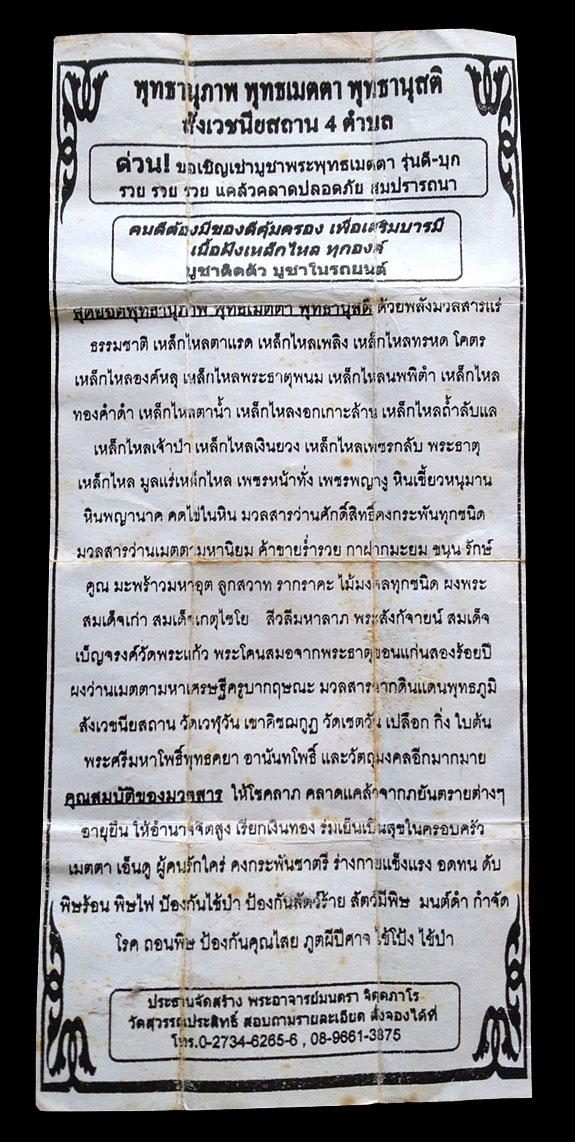 พุทธานุภาพ พุทธเมตตา พุทธานุสติ
สังเวชนียสถาน 4 ตำบล
ด่วน! ขอเชิญเช่าบูชาพระพุทธเมตตา รุ่นดี-บุก
รวย รวย รวย แคล้วคลาดปลอดภัย สมปรารถนา
คนดีต้องมีของดีคุ้มครอง เพื่อเสริมบารมี
เนื้อฝังเหล็กไหล ทุกองค์
บูชาติดตัว บูชาในรถยนต์
สุดยอดพุทธานุภาพ พุทธเมตตา พุทธานุสติ ด้วยพลังมวลสารแร่
ธรรมชาติ เหล็กไหลตาแรด เหล็กไหลเพลิง เหล็กไหลทรหด โคตร
เหล็กไหลองค์หลุ เหล็กไหลพระธาตุพนม เหล็กไหลนพพิตำ เหล็กไหล
ทองคำดำ เหล็กไหลตาน้ำ เหล็กไหลงอกเกาะล้าน เหล็กไหลถ้ำลับแล
เหล็กไหลเจ้าป่า เหล็กไหลเงินยวง เหล็กไหลเพชรกลับ พระธาตุ
เหล็กไหล มูลแร่เหล็กไหล เพชรหน้าทั่ง เพชรพญางู หินเขี้ยวหนุมาน
หินพญานาค คดไข่ในหิน มวลสารว่านศักดิ์สิทธิ์คงกระพันทุกชนิด
มวลสารว่านเมตตามหานิยม ค้าขายร่ำรวย กาฝากมะยม ขนุน รักษ์
คูณ มะพร้าวมหาอุต ลูกสวาท รากราคะ ไม้มงคลทุกชนิด ผงพระ
สมเด็จเก่า สมเด็จเกตุไชโย สีวลีมหาลาภ พระสังกัจายน์ สมเด็จ
เบ็ญจรงค์วัดพระแก้ว พระโคนสมอจากพระธาตุขอนแก่นสองร้อยปี
ผงว่านเมตตามหาเศรษฐีครูบากฤษณะ มวลสารจากดินแดนพุทธภูมิ
สังเวชนียสถาน วัดเวฬุวัน เขาคิชฌกูฏ วัดเชตวัน เปลือก กิ่ง ใบต้น
พระศรีมหาโพธิ์พุทธคยา อานันทโพธิ์ และวัตถุมงคลอีกมากมาย
คุณสมบัติของมวลสาร ให้โชคลาภ คลาดแคล้วจากภยันตรายต่างๆ
อายุยืน ให้อำนาจจิตสูง เรียกเงินทอง ร่มเย็นเป็นสุขในครอบครัว
เมตตา เอ็นดู ผู้คนรักใคร่ คงกระพันชาตรี ร่างกายแข็งแรง อดทน ดับ
พิษร้อน พิษไฟ ป้องกันไข้ป่า ป้องกันสัตว์ร้าย สัตว์มีพิษ มนต์ดำ กำจัด
โรค ถอนพิษ ป้องกันคุณไสย ภูตผีปีศาจ ไข้โป้ง ไข้ป่า
ประธานจัดสร้าง พระอาจารย์มนตรา จิตฺตภาโร
วัดสุวรรณประสิทธิ์ สอบถามรายละเอียด สั่งจองได้ที่
โทร.0-2734-6265-6 , 08-9661-3875